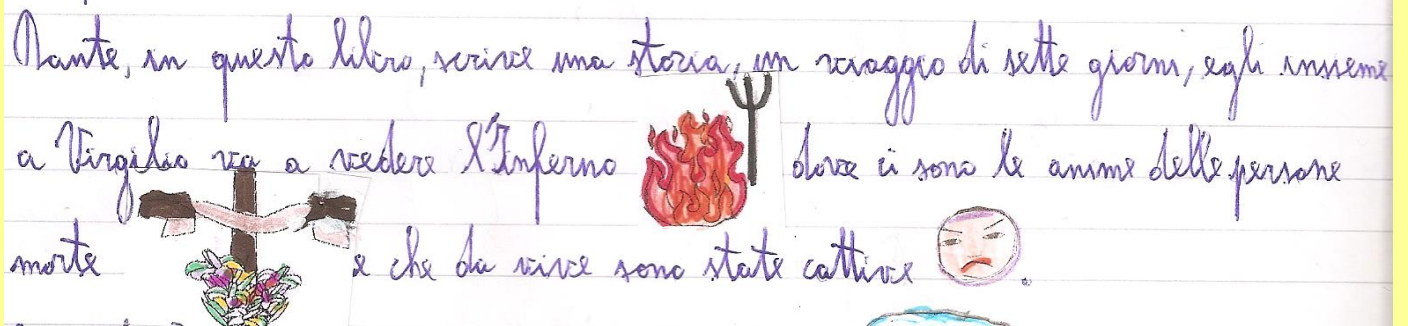 Dante, in questo libro, scrive una storia, un viaggio di sette giorni, egli insieme
a Virgilio va a vedere l'Inferno dove ci sono le anime delle persone
morte e che da vive sono state cattive.